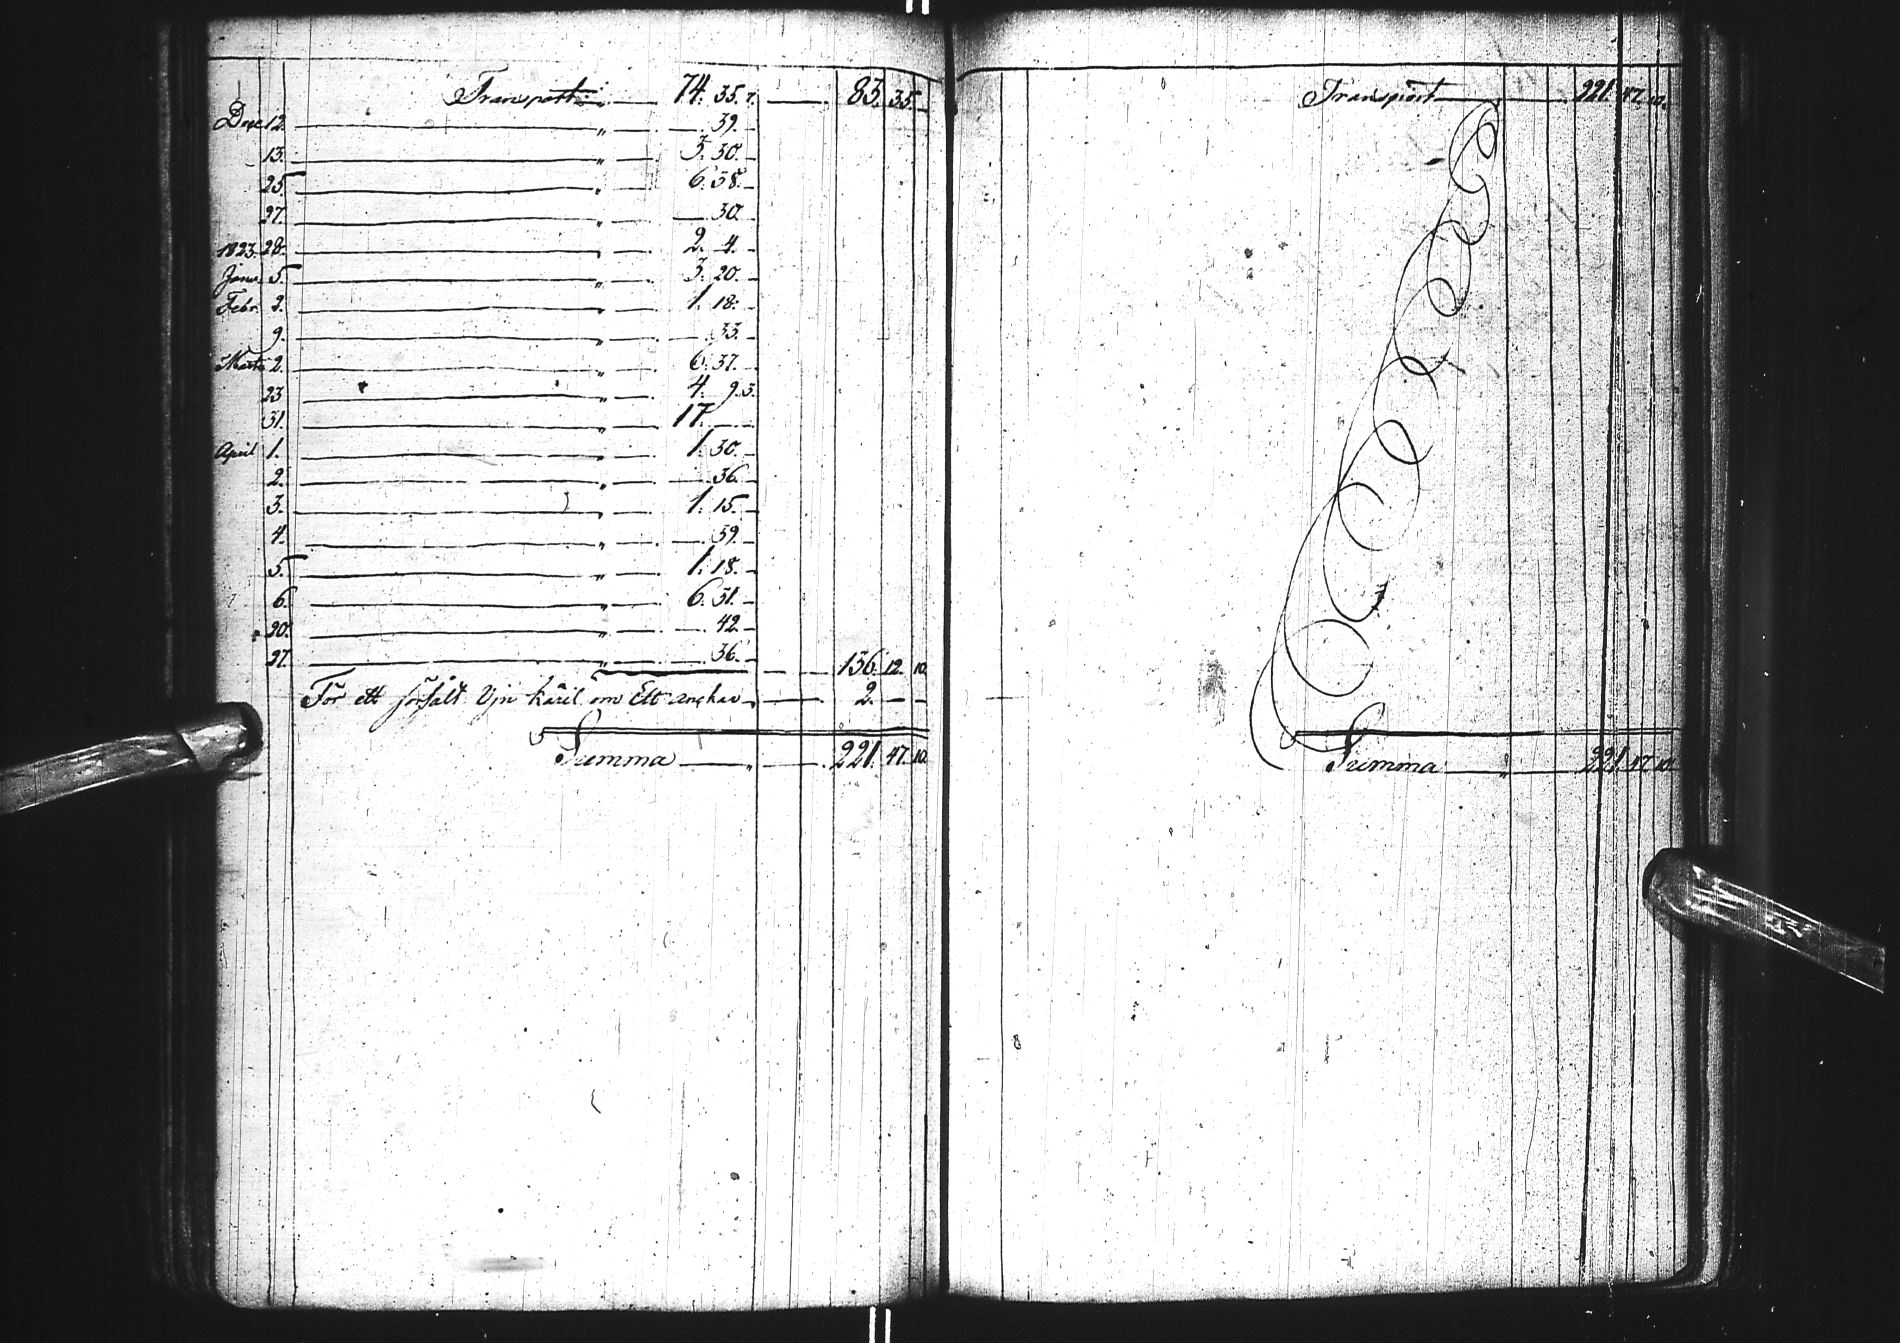 Transport „ — 74. 35. 7. — 83. 35. —
Dec 12. — „ — 39. —
13. — „ — 3. 30. —
25. — „ — 6. 38. —
27. — „ — 30. —
1823. 28. — „ — 2. 4. —
Janu. 5 — „ — 3. 20. —
Febr. 2. — „ — 1. 18. —
9. — „ — 33. —
Marti 2. — „ — 6. 37. —
23 — „ — 4. 9. 3.
31. — „ — 17. —
April 1. — „ — 1. 30. —
2. — „ — 36. —
3. — „ — 1. 15. —
4. — „ — 39. —
5. — „ — 1. 18. —
6. — „ — 6. 31. —
20. — „ — 42. —
27. — „ — 36. — 136. 12. 10.
För ett försålt Vin käril om Ett anckar — 2. — —
Summa — „ — 221. 47. 10.
Transport — 221. 47. 10.
Summa — „ — 221. 47. 10.